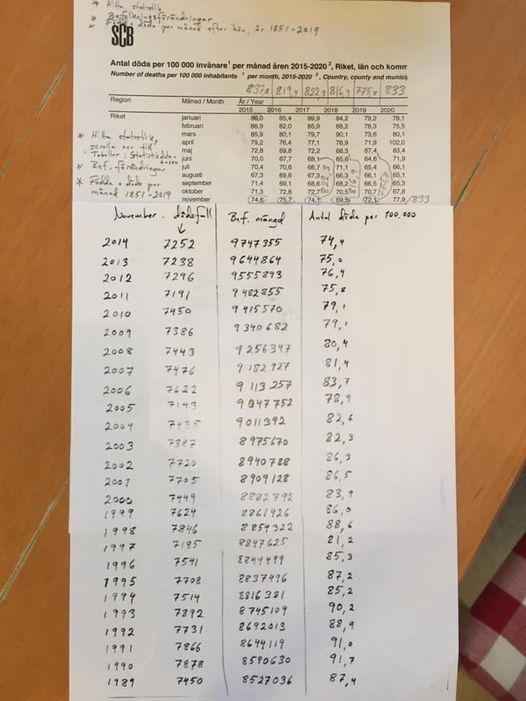 * Hitta statistik
* Befolkningsförändringar
* Födda o döda per månad efter kön, år 1851-2019
SCB
Antal döda per 100 000 invånare¹ per månad åren 2015-2020², Riket, län och komm
Number of deaths per 100 000 inhabitants¹ per month, 2015-2020². Country, county and municip
837,8 819,4 832,3 816,9 775,8 833
Region Månad / Month År / Year
2015 2016 2017 2018 2019 2020
Riket januari 86,0 85,4 89,9 84,2 79,2 78,1
februari 88,9 82,0 85,9 88,2 78,3 75,5
mars 85,9 80,1 79,7 90,1 73,6 80,1
april 79,2 76,4 77,1 76,9 71,9 102,0
maj 72,8 69,8 72,2 66,3 67,4 83,4
juni 70,0 67,7 68,1 65,6 64,6 71,9
juli 70,4 70,6 66,7 71,1 65,4 66,1
augusti 67,3 69,8 67,3 66,3 66,1 65,1
september 71,4 69,1 68,6 68,2 66,5 65,3
oktober 71,3 72,8 72,7 70,5 70,7 67,8
november 74,6 75,7 74,1 69,5 72,1 77,9 /833
* Hitta statistik,
scrolla ner till
"Tabeller i Statistikdatabasen
* Bef. förändringar
* Födda o döda per
månad 1851-2019
November - dödsfall Bef. mängd Antal döda per 100.000
2014 7252 9747355 74,4
2013 7238 9644864 75,0
2012 7296 9555893 76,4
2011 7191 9482855 75,8
2010 7450 9415570 79,1
2009 7386 9340682 79,1
2008 7443 9256347 80,4
2007 7476 9182927 81,4
2006 7622 9113257 83,7
2005 7143 9047752 78,9
2004 7435 9011392 82,6
2003 7387 8975670 82,3
2002 7720 8940788 86,3
2001 7705 8909128 86,5
2000 7449 8882792 83,9
1999 7624 8861426 86,0
1998 7846 8854322 88,6
1997 7185 8847625 81,2
1996 7541 8844499 85,3
1995 7708 8837496 87,2
1994 7514 8816381 85,2
1993 7892 8745109 90,2
1992 7731 8692013 88,9
1991 7866 8644119 91,0
1990 7878 8590630 91,7
1989 7450 8527036 87,4